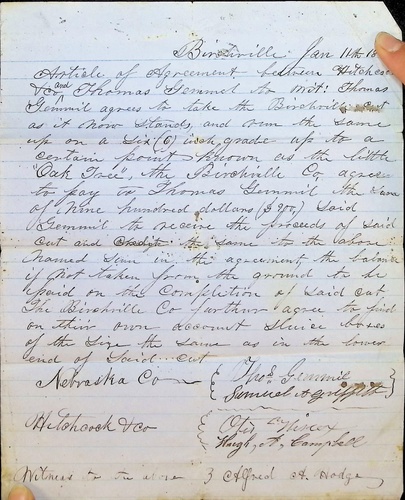 Birchville Jan 11th 18
Article of Agreement between Hitchcock
& Co and Thomas Gemmil to Wit: Thomas
Gemmil agrees to take the Birchville cut
as it now stands, and run the same
up on a Six (6) inch grade up to a
certain point known as the little
"Oak Tree", the Birchville Co agree
to pay to Thomas Gemmil the Sum
of Nine hundred dollars ($900/) Said
Gemmil to receive the proceeds of said
cut and Credit the same to the above
Named Sum in the agreement the balance
if not taken from the ground to be
paid on the Completion of Said Cut
The Birchville Co further agree to find
on their own account Sluice boxes
of the Size the same as in the lower
end of Said cut
Nebraska Co { Thos Gemmil
Samuel A Griffith
Hitchcock & co { Otis
Hugh A. Campbell
Witness to the above } Alfred A. Hodge